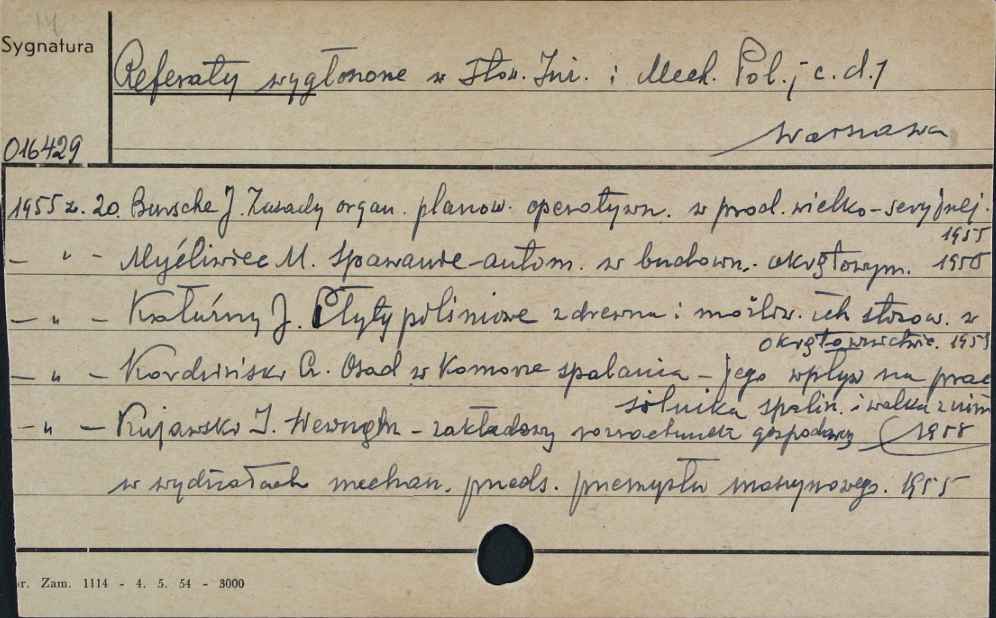 Sygnatura
Referaty wygłoszone w Stow. Inż. i Mech. Pol. c.d.
Warszawa
016429
1955 z. 20. Bursche J. Zasady organ. planow. operatywn. w prod. wielko-seryjnej.
1955
- " - Myśliwiec M. Spawanie autom. w budown. okrętowym. 1955
- " - J. Płyty pilśniowe z drewna i możliw. ich stosow. w
okrętownictwie. 1955
- " - Kordziński C. Osad w komorze spalania - jego wpływ na pracę
silnika spalin. i walka z nim
- " - Kujawski J. Wewnątrz-zakładowy rozrachunek gospodarczy 1955
w wydziałach mechan. przeds. przemysłu maszynowego. 1955
r. Zam. 1114 - 4. 5. 54 - 3000